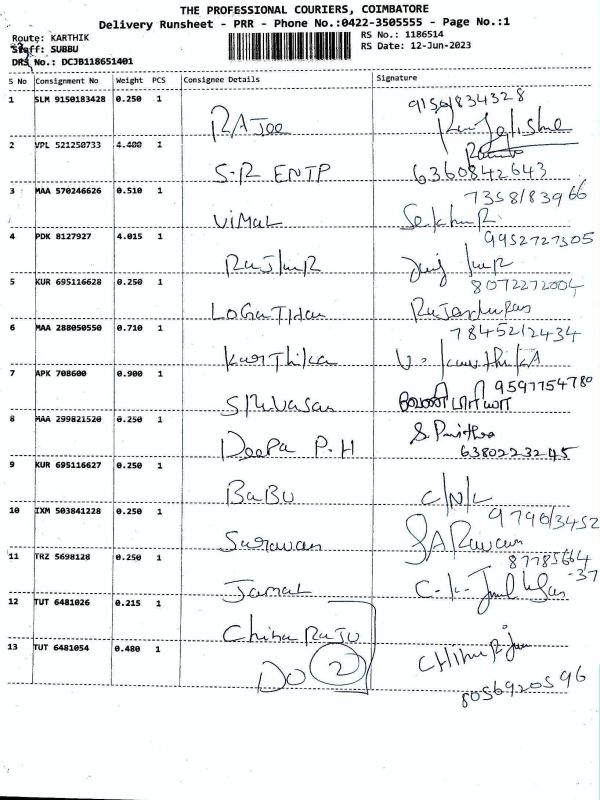 THE PROFESSIONAL COURIERS, COIMBATORE
Delivery Runsheet - PRR - Phone No.:0422-3505555 - Page No.:1
Route: KARTHIK
Staff: SUBBU
DRS No.: DCJB118651401
RS No.: 1186514
RS Date: 12-Jun-2023
S No Consignment No Weight PCS Consignee Details Signature
1 SLM 9150183428 0.250 1 RAJee 91501834328
2 VPL 521250733 4.400 1 S-R ENTP 6360842643
3 MAA 570246626 0.510 1 ViMaL 7358183966
4 PDK 8127927 4.015 1 RaJkuR 9952727305
5 KUR 695116628 0.250 1 LoGaTHan 8072272004
6 MAA 288050550 0.710 1 KarThika 7845212434
V. KarthikA
7 APK 708600 0.900 1 SRiVasan 9597754780
8 MAA 299821520 0.250 1 DeePa P.H 6380223245
9 KUR 695116627 0.250 1 BaBu C/N/L
10 IXM 503841228 0.250 1 Saravan SARavan 979013452
11 TRZ 5698128 0.250 1 Jamal 87785664-37
12 TUT 6481026 0.215 1 China RaJu
13 TUT 6481054 0.480 1 Do 2
8056920596